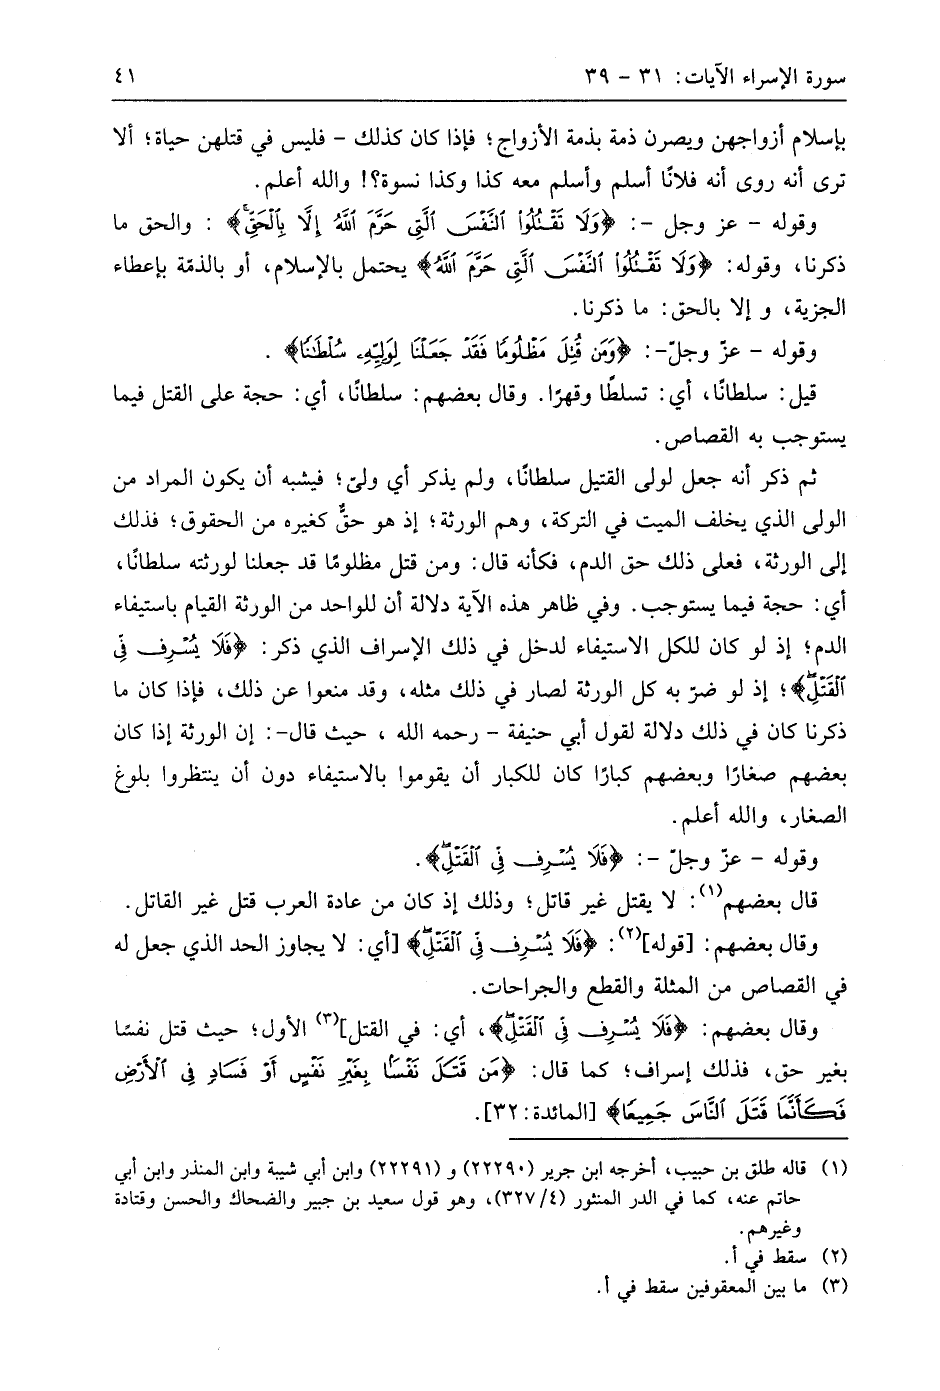 سورة الإسراء الآيات: ٣١ - ٣٩ ٤١
بإسلام أزواجهن ويصرن ذمة بذمة الأزواج؛ فإذا كان كذلك – فليس في قتلهن حياة؛ ألا
ترى أنه روى أنه فلانًا أسلم وأسلم معه كذا وكذا نسوة؟! والله أعلم.
وقوله – عز وجل –: ﴿وَلَا تَقْتُلُوا۟ ٱلنَّفْسَ ٱلَّتِى حَرَّمَ ٱللَّهُ إِلَّا بِٱلْحَقِّۚ﴾ : والحق ما
ذكرنا، وقوله: ﴿وَلَا تَقْتُلُوا۟ ٱلنَّفْسَ ٱلَّتِى حَرَّمَ ٱللَّهُ﴾ يحتمل بالإسلام، أو بالذمّة بإعطاء
الجزية، و إلا بالحق: ما ذكرنا.
وقوله – عزّ وجلّ–: ﴿وَمَن قُتِلَ مَظْلُومًا فَقَدْ جَعَلْنَا لِوَلِيِّهِۦ سُلْطَٰنًا﴾ .
قيل: سلطانًا، أي: تسلطًا وقهرًا. وقال بعضهم: سلطانًا، أي: حجة على القتل فيما
يستوجب به القصاص.
ثم ذكر أنه جعل لولى القتيل سلطانًا، ولم يذكر أي ولىّ؛ فيشبه أن يكون المراد من
الولى الذي يخلف الميت في التركة، وهم الورثة؛ إذ هو حقٌّ كغيره من الحقوق؛ فذلك
إلى الورثة، فعلى ذلك حق الدم، فكأنه قال: ومن قتل مظلومًا قد جعلنا لورثته سلطانًا،
أي: حجة فيما يستوجب. وفي ظاهر هذه الآية دلالة أن للواحد من الورثة القيام باستيفاء
الدم؛ إذ لو كان للكل الاستيفاء لدخل في ذلك الإسراف الذي ذكر: ﴿فَلَا يُسْرِف فِّى
ٱلْقَتْلِۖ﴾؛ إذ لو ضرّ به كل الورثة لصار في ذلك مثله، وقد منعوا عن ذلك، فإذا كان ما
ذكرنا كان في ذلك دلالة لقول أبي حنيفة – رحمه الله ، حيث قال–: إن الورثة إذا كان
بعضهم صغارًا وبعضهم كبارًا كان للكبار أن يقوموا بالاستيفاء دون أن ينتظروا بلوغ
الصغار، والله أعلم.
وقوله – عزّ وجلّ –: ﴿فَلَا يُسْرِف فِّى ٱلْقَتْلِۖ﴾.
قال بعضهم(١): لا يقتل غير قاتل؛ وذلك إذ كان من عادة العرب قتل غير القاتل.
وقال بعضهم: [قوله](٢): ﴿فَلَا يُسْرِف فِّى ٱلْقَتْلِۖ﴾ [أي: لا يجاوز الحد الذي جعل له
في القصاص من المثلة والقطع والجراحات.
وقال بعضهم: ﴿فَلَا يُسْرِف فِّى ٱلْقَتْلِۖ﴾، أي: في القتل](٣) الأول؛ حيث قتل نفسًا
بغير حق، فذلك إسراف؛ كما قال: ﴿مَن قَتَلَ نَفْسًۢا بِغَيْرِ نَفْسٍ أَوْ فَسَادٍ فِى ٱلْأَرْضِ
فَكَأَنَّمَا قَتَلَ ٱلنَّاسَ جَمِيعًا﴾ [المائدة: ٣٢].
(١) قاله طلق بن حبيب، أخرجه ابن جرير (٢٢٢٩٠) و (٢٢٢٩١) وابن أبي شيبة وابن المنذر وابن أبي
حاتم عنه، كما في الدر المنثور (٣٢٧/٤)، وهو قول سعيد بن جبير والضحاك والحسن وقتادة
وغيرهم.
(٢) سقط في أ.
(٣) ما بين المعقوفين سقط في أ.